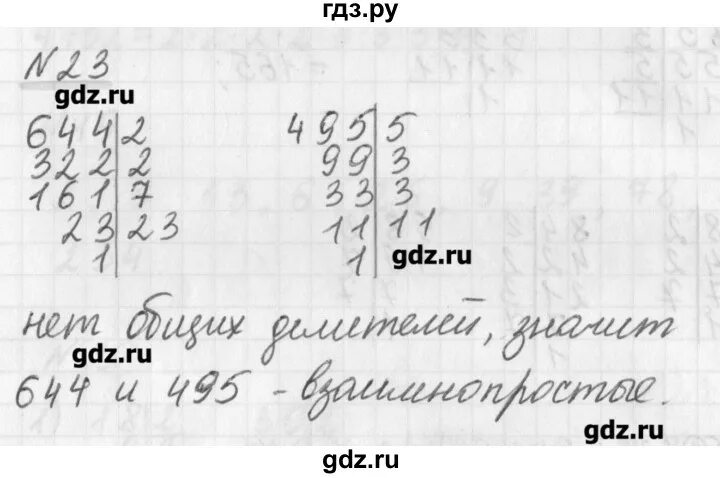 гдз.ру
N 23
gdz.ru
644|2 495|5
322|2 99|3
161|7 33|3
23|23 11|11
1| 1| gdz.ru
нет общих делителей, значит
gdz.ru
644 и 495 - взаимнопростые.
gdz.ru
gdz.ru